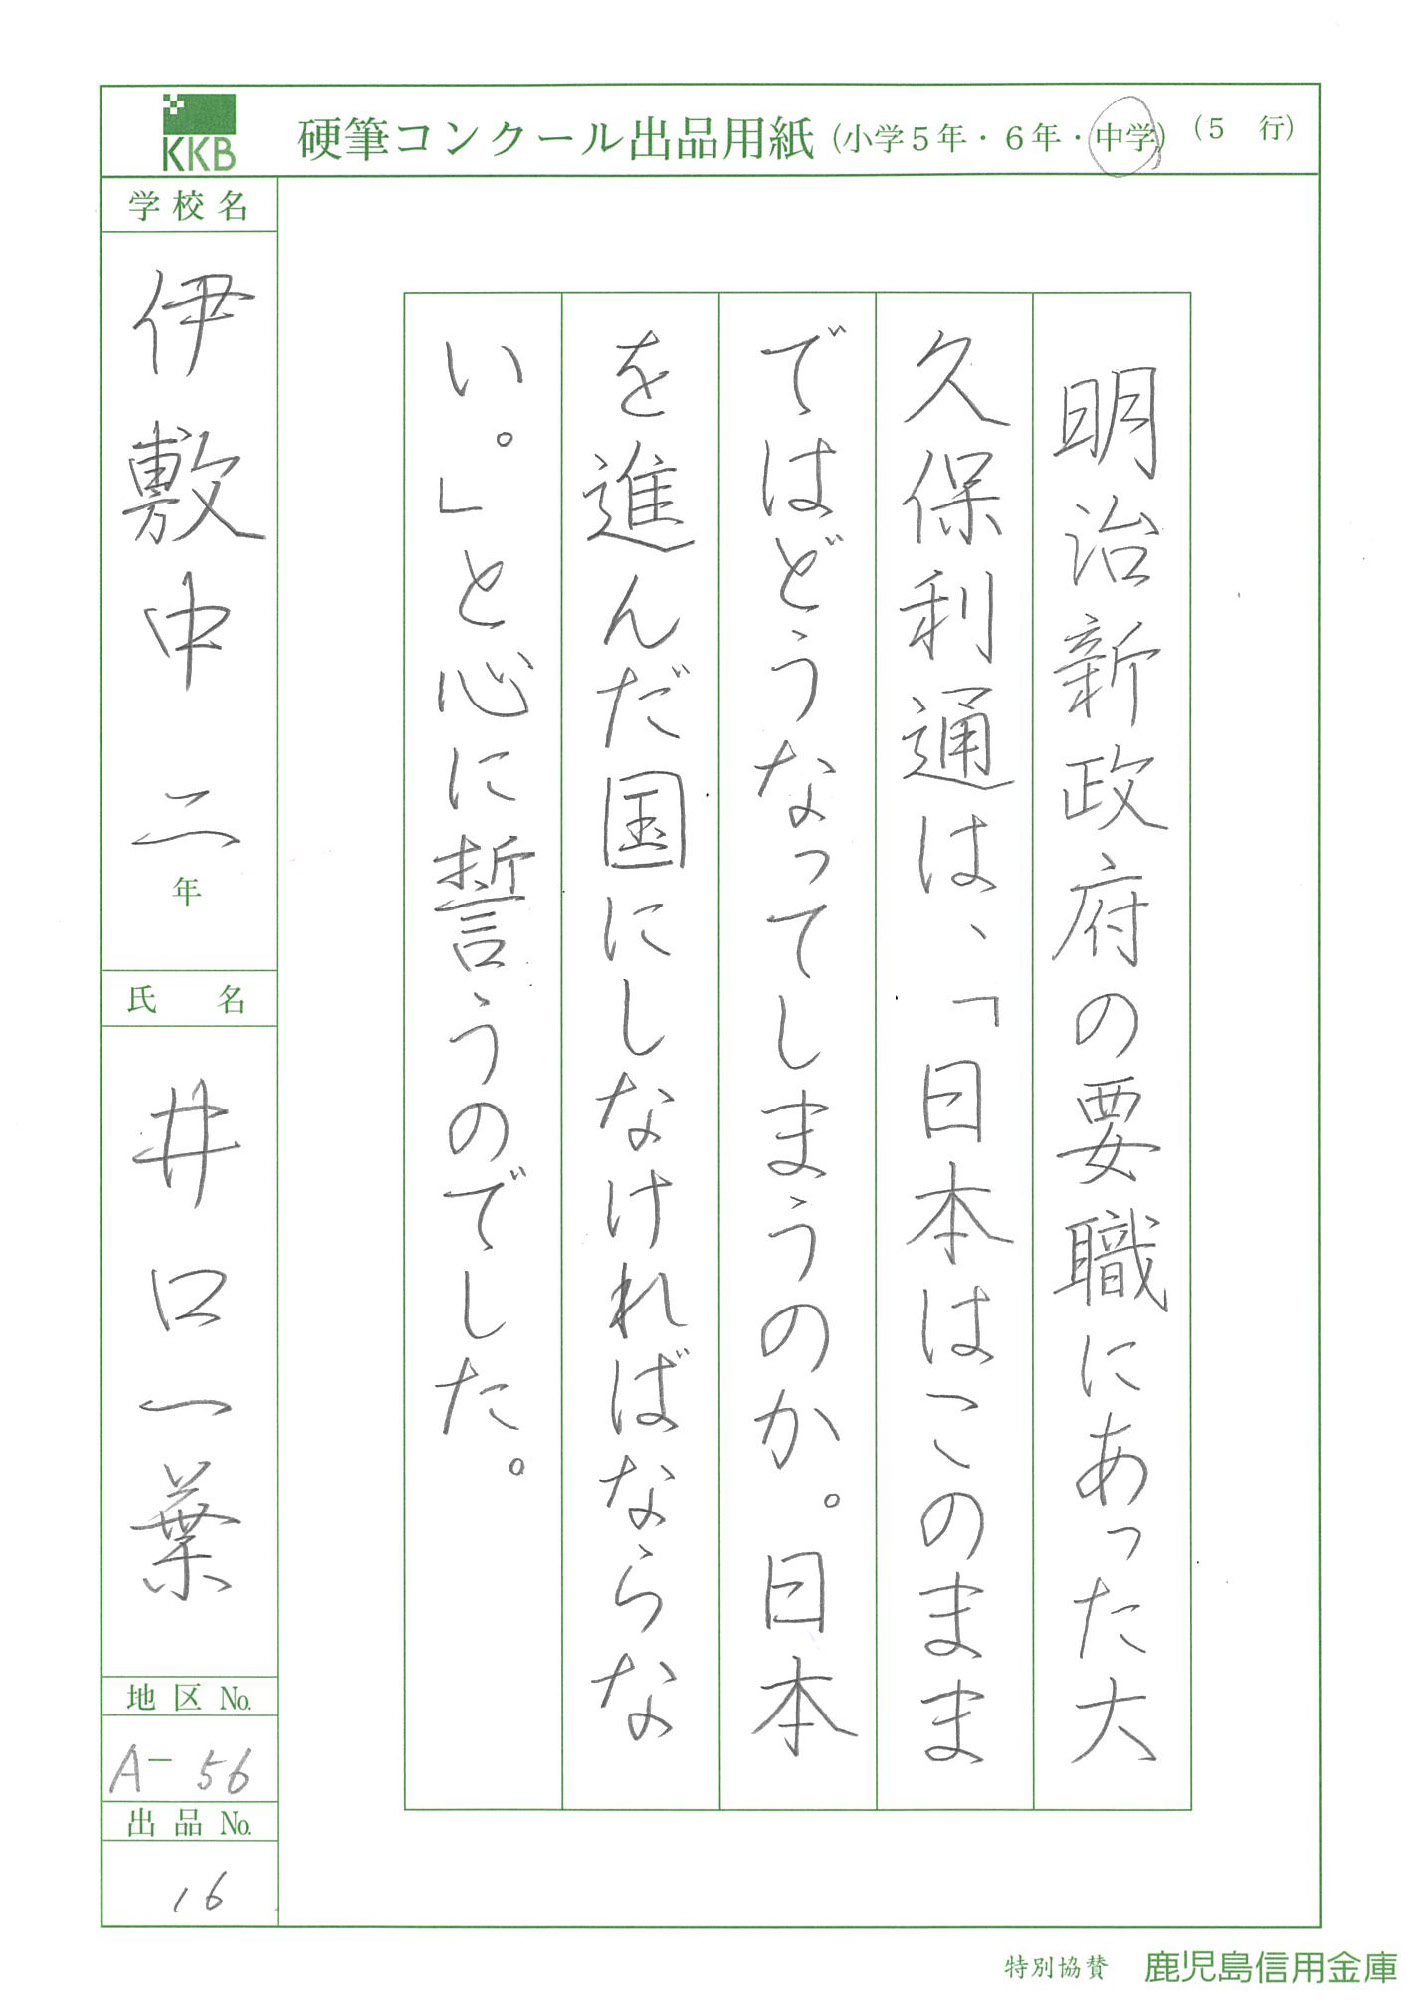 KKB
硬筆コンクール出品用紙(小学5年・6年・中学)(5 行)
明治新政府の要職にあった大
久保利通は、「日本はこのまま
ではどうなってしまうのか。日本
を進んだ国にしなければならな
い。」と心に誓うのでした。
学校名
伊敷中 二年
氏 名
井口一葉
地区 No.
A-56
出品 No.
16
特別協賛 鹿児島信用金庫